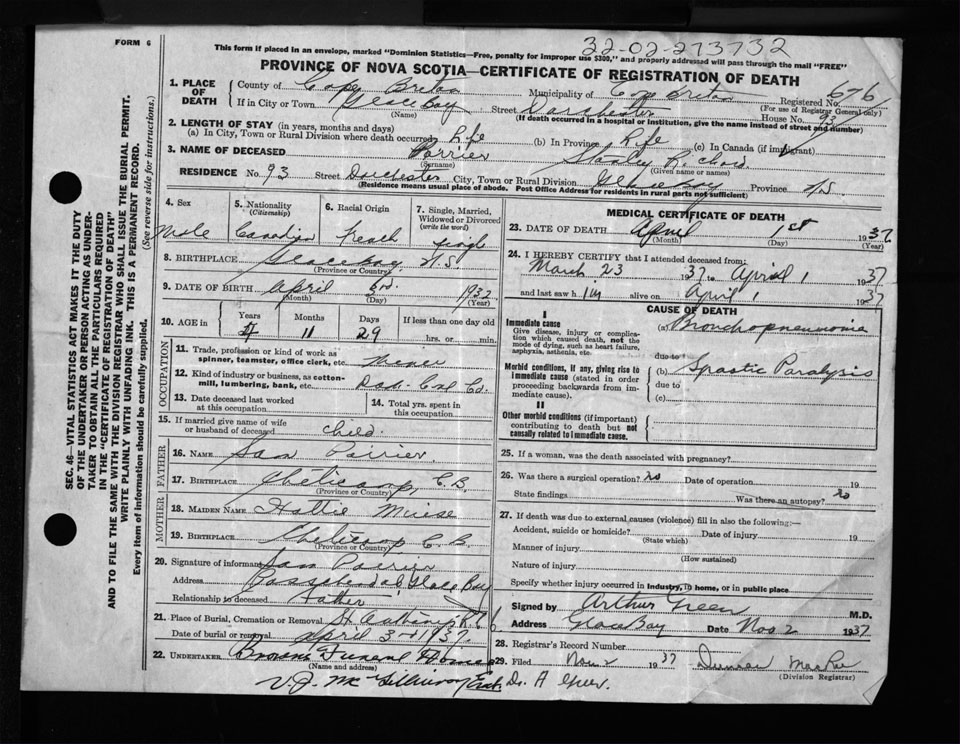 FORM 6
32-02-273732
This form if placed in an envelope, marked "Dominion Statistics—Free, penalty for improper use $300," and properly addressed will pass through the mail "FREE"
PROVINCE OF NOVA SCOTIA—CERTIFICATE OF REGISTRATION OF DEATH
1. PLACE OF DEATH County of Cape Breton Municipality of Cape Breton Registered No. 676
(For use of Registrar General only)
If in City or Town Glace Bay Street Dorchester House No. 93
(Name) (If death occurred in a hospital or institution, give the name instead of street and number)
2. LENGTH OF STAY (in years, months and days)
(a) In City, Town or Rural Division where death occurred Life (b) In Province Life (c) In Canada (if immigrant)
3. NAME OF DECEASED Porrier Stanley Richard
(Surname) (Given name or names)
RESIDENCE No. 93 Street Dorchester City, Town or Rural Division Glace Bay Province N.S
(Residence means usual place of abode. Post Office Address for residents in rural parts not sufficient)
4. Sex 5. Nationality (Citizenship) 6. Racial Origin 7. Single, Married, Widowed or Divorced (write the word)
Male Canadian French single
8. BIRTHPLACE Glace Bay, N.S.
(Province or Country)
9. DATE OF BIRTH April 3rd. 1932
(Month) (Day) (Year)
10. AGE in Years Months Days If less than one day old
4 11 29 hrs. or min.
OCCUPATION
11. Trade, profession or kind of work as spinner, teamster, office clerk, etc.
12. Kind of industry or business, as cotton-mill, lumbering, bank, etc. Dom. Coal Co.
13. Date deceased last worked at this occupation
14. Total yrs. spent in this occupation
15. If married give name of wife or husband of deceased child.
FATHER
16. NAME Sam Porrier.
17. BIRTHPLACE Cheticamp, C.B.
(Province or Country)
MOTHER
18. MAIDEN NAME Hattie Muise
19. BIRTHPLACE Cheticamp C.B.
(Province or Country)
20. Signature of informant Sam Porrier
Address Glace Bay
Relationship to deceased Father
21. Place of Burial, Cremation or Removal St. Anthony R.C.
Date of burial or removal April 3rd 1937.
22. UNDERTAKER Browns Funeral Home
(Name and address)
MEDICAL CERTIFICATE OF DEATH
23. DATE OF DEATH April 1st 1937
(Month) (Day) (Year)
24. I HEREBY CERTIFY that I attended deceased from:
March 23 1937 to April 1 1937
and last saw him alive on April 1 1937
CAUSE OF DEATH
I
Immediate cause
Give disease, injury or complication which caused death, not the mode of dying, such as heart failure, asphyxia, asthenia, etc.
(a) Bronchopneumonia
due to
Morbid conditions, if any, giving rise to immediate cause (stated in order proceeding backwards from immediate cause).
(b) Spastic Paralysis
due to
(c)
II
Other morbid conditions (if important) contributing to death but not causally related to immediate cause.
25. If a woman, was the death associated with pregnancy?
26. Was there a surgical operation? no Date of operation 19
State findings Was there an autopsy? no
27. If death was due to external causes (violence) fill in also the following:—
Accident, suicide or homicide? Date of injury 19
(State which)
Manner of injury
(How sustained)
Nature of injury
Specify whether injury occurred in industry, in home, or in public place
Signed by Arthur Green M.D.
Address Glace Bay Date Nov 2 1937
28. Registrar's Record Number
29. Filed Nov 2 1937 Duncan
(Division Registrar)
Dr. A Green.
SEC. 46—VITAL STATISTICS ACT MAKES IT THE DUTY OF THE UNDERTAKER OR PERSON ACTING AS UNDERTAKER TO OBTAIN ALL THE PARTICULARS REQUIRED IN THE "CERTIFICATE OF REGISTRATION OF DEATH" AND TO FILE THE SAME WITH THE DIVISION REGISTRAR WHO SHALL ISSUE THE BURIAL PERMIT.
WRITE PLAINLY WITH UNFADING INK. THIS IS A PERMANENT RECORD.
Every item of information should be carefully supplied. (See reverse side for instructions.)